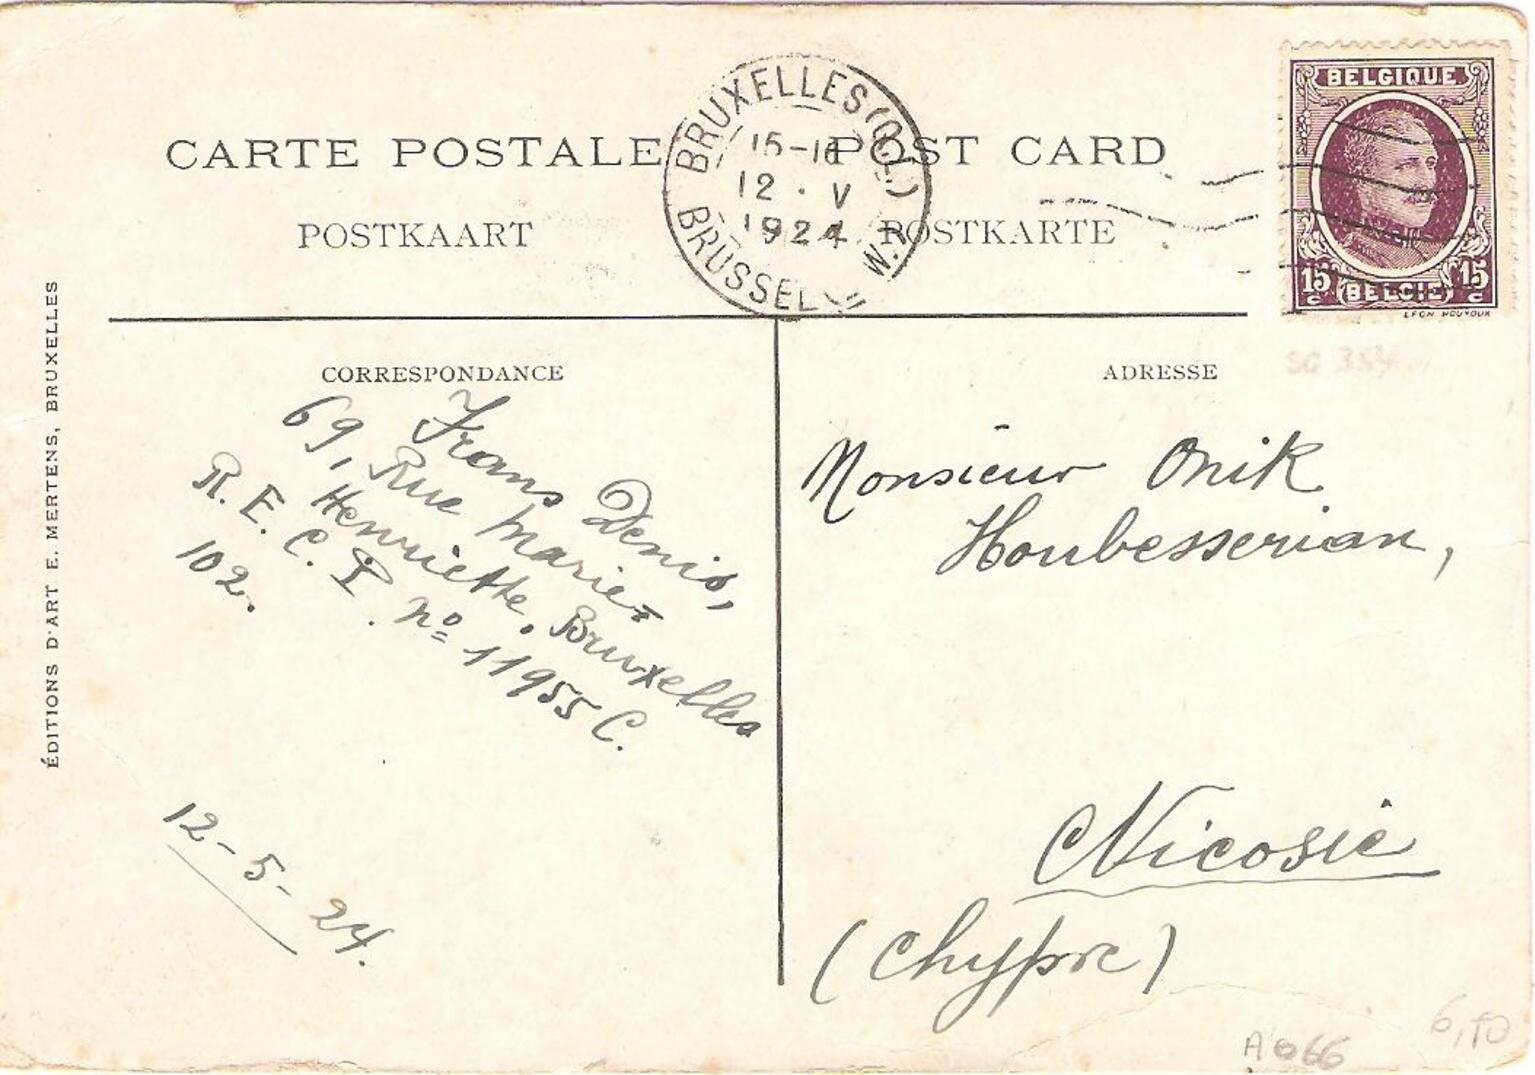 CARTE POSTALE
POST CARD
POSTKAART
POSTKARTE
BRUXELLES (Q.L.)
15-16
12 · V
1924
BRUSSEL W.
BELGIQUE
15 c (BELGIË) 15 c
LEON HOUYOUX
SG 354
ÉDITIONS D'ART E. MERTENS, BRUXELLES
CORRESPONDANCE
Frans Denis,
69, Rue Marie-
Henriette, Bruxelles
R. E. C. I. nº 11955 C.
102.
12-5-24.
ADRESSE
Monsieur Onik
Houbesserian,
Nicosie
(Chypre)
A066
6,50